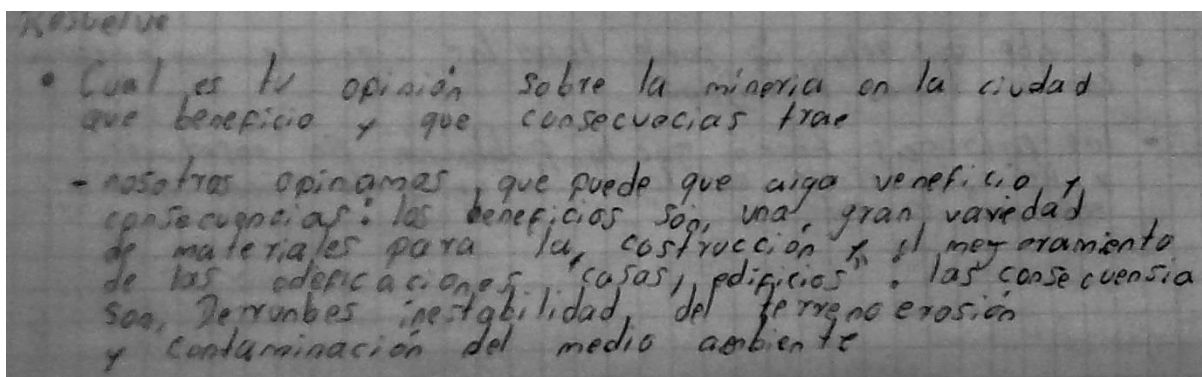 Resuelve
• Cual es tu opinión sobre la mineria en la ciudad
que beneficio y que consecuecias trae
- nosotros opinamos, que puede que aiga veneficio, y,
consecuencias: los beneficios son, una, gran, variedad
de materiales para la, costrucción, y el mejoramiento
de las edeficaciones, "casas, edificios". las consecuensia
son, Derrunbes inestabilidad, del terreno erosión
y contaminación del medio anbiente